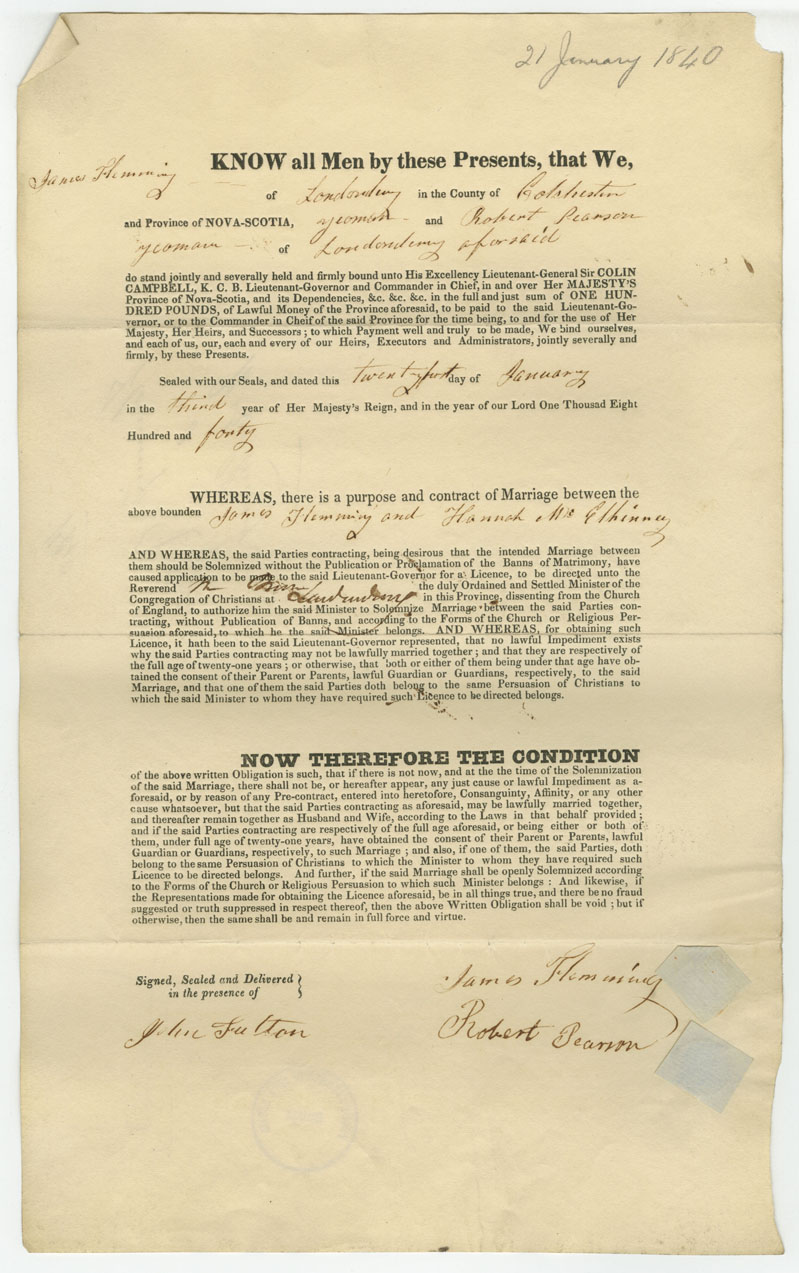 21 January 1840
KNOW all Men by these Presents, that We,
James Flemming
of Londonderry in the County of Colchester
and Province of NOVA-SCOTIA, yeoman and Robert Pearson
yeoman of Londonderry aforsaid
do stand jointly and severally held and firmly bound unto His Excellency Lieutenant-General Sir COLIN
CAMPBELL, K. C. B. Lieutenant-Governor and Commander in Chief, in and over Her MAJESTY'S
Province of Nova-Scotia, and its Dependencies, &c. &c. &c. in the full and just sum of ONE HUN-
DRED POUNDS, of Lawful Money of the Province aforesaid, to be paid to the said Lieutenant-Go-
vernor, or to the Commander in Cheif of the said Province for the time being, to and for the use of Her
Majesty, Her Heirs, and Successors ; to which Payment well and truly to be made, We bind ourselves,
and each of us, our, each and every of our Heirs, Executors and Administrators, jointly severally and
firmly, by these Presents.
Sealed with our Seals, and dated this twenty first day of January
in the third year of Her Majesty's Reign, and in the year of our Lord One Thousad Eight
Hundred and forty
WHEREAS, there is a purpose and contract of Marriage between the
above bounden James Flemming and Hannah Mc Elhinney
AND WHEREAS, the said Parties contracting, being desirous that the intended Marriage between
them should be Solemnized without the Publication or Proclamation of the Banns of Matrimony, have
caused application to be made to the said Lieutenant-Governor for a Licence, to be directed unto the
Reverend the duly Ordained and Settled Minister of the
Congregation of Christians at Londonderry in this Province, dissenting from the Church
of England, to authorize him the said Minister to Solemnize Marriage between the said Parties con-
tracting, without Publication of Banns, and according to the Forms of the Church or Religious Per-
suasion aforesaid, to which he the said Minister belongs. AND WHEREAS, for obtaining such
Licence, it hath been to the said Lieutenant-Governor represented, that no lawful Impediment exists
why the said Parties contracting may not be lawfully married together ; and that they are respectively of
the full age of twenty-one years ; or otherwise, that both or either of them being under that age have ob-
tained the consent of their Parent or Parents, lawful Guardian or Guardians, respectively, to the said
Marriage, and that one of them the said Parties doth belong to the same Persuasion of Christians to
which the said Minister to whom they have required such Licence to be directed belongs.
NOW THEREFORE THE CONDITION
of the above written Obligation is such, that if there is not now, and at the the time of the Solemnization
of the said Marriage, there shall not be, or hereafter appear, any just cause or lawful Impediment as a-
foresaid, or by reason of any Pre-contract, entered into heretofore, Consanguinty, Affinity, or any other
cause whatsoever, but that the said Parties contracting as aforesaid, may be lawfully married together,
and thereafter remain together as Husband and Wife, according to the Laws in that behalf provided ;
and if the said Parties contracting are respectively of the full age aforesaid, or being either or both of
them, under full age of twenty-one years, have obtained the consent of their Parent or Parents, lawful
Guardian or Guardians, respectively, to such Marriage ; and also, if one of them, the said Parties, doth
belong to the same Persuasion of Christians to which the Minister to whom they have required such
Licence to be directed belongs. And further, if the said Marriage shall be openly Solemnized according
to the Forms of the Church or Religious Persuasion to which such Minister belongs : And likewise, if
the Representations made for obtaining the Licence aforesaid, be in all things true, and there be no fraud
suggested or truth suppressed in respect thereof, then the above Written Obligation shall be void ; but if
otherwise, then the same shall be and remain in full force and virtue.
Signed, Sealed and Delivered }
in the presence of
James Flemming
John Fulton
Robert Pearson